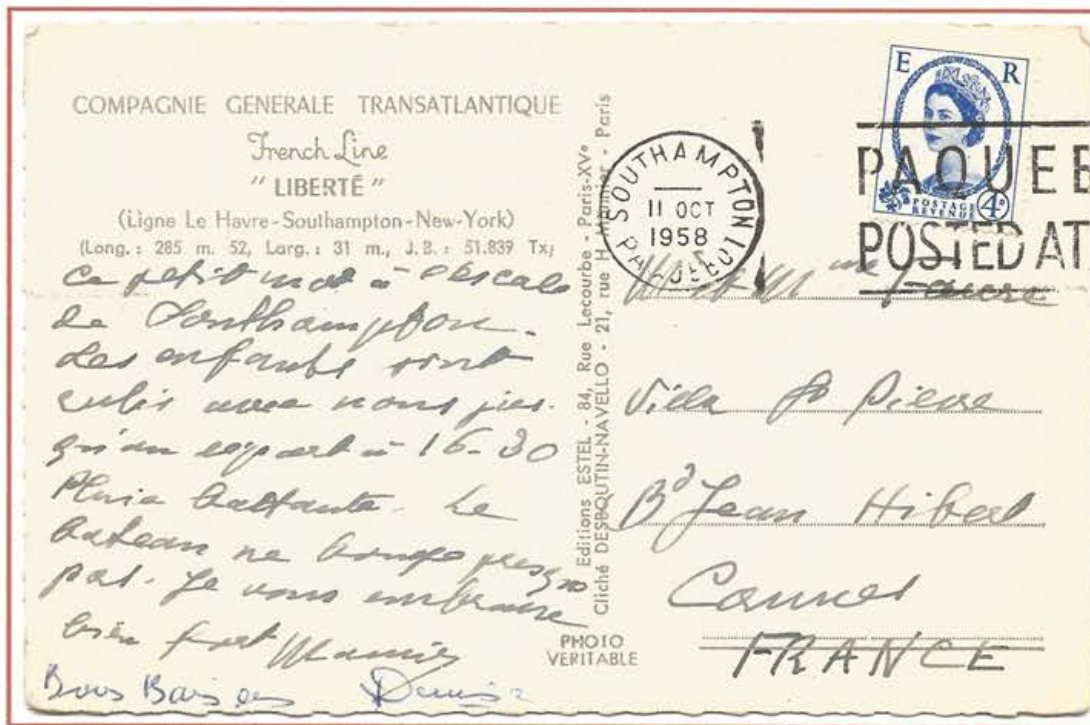 COMPAGNIE GENERALE TRANSATLANTIQUE
French Line
" LIBERTÉ "
(Ligne Le Havre-Southampton-New-York)
(Long. : 285 m. 52, Larg. : 31 m., J.B. : 51.839 Tx)
Ce petit mot à l'escale
de Southampton.
Les enfants sont
avec nous jus-
qu'au départ à 16-30
Pluie battante. Le
bateau ne bouge presque
pas. Je vous embrasse
bien fort
Bons Baisers Denise
Editions ESTEL - 84, Rue Lecourbe - Paris-XVe
Cliché DESBOUTIN-NAVELLO - 21, rue H. - Paris
PHOTO
VERITABLE
SOUTHAMPTON
11 OCT
1958
PAQUEBOT
E R
POSTAGE
REVENUE
4D
PAQUEB
POSTED AT
M et Mme Faure
Villa St Pierre
Bd Jean Hibert
Cannes
FRANCE